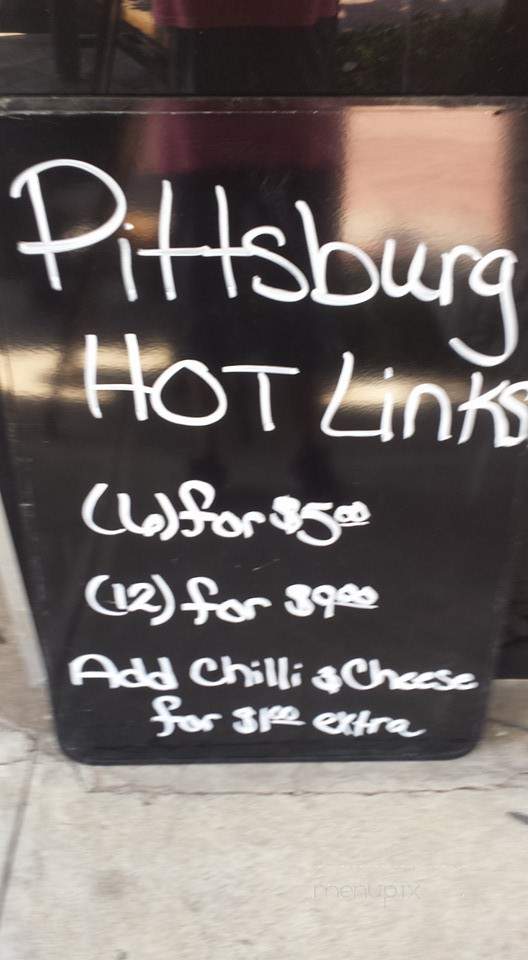 Pittsburg
HOT Links
(6) for $5.00
(12) for $9.00
Add Chilli & Cheese
for $1.00 extra
menupix